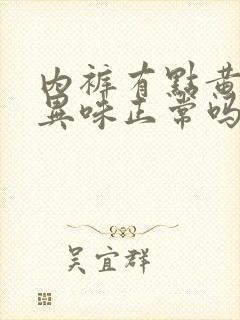 內裤有點黃
異味正常吗
吴宜群